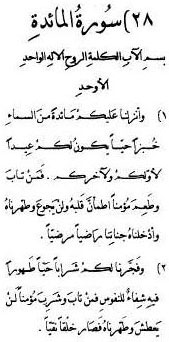 ٢٨) سورة المائدة
بسم الآب الكلمة الروح الاله الواحد
الأوحد
١) وأنزلنا عليكم مائدة من السماء
خبزا حيا يكون لكم عيدا
لأولكم ولآخركم . فمن تاب
وطعم مؤمنا اطمأن قلبه ولن يجوع وطهرناه
وأدخلناه جناتنا راضيا مرضيا .
٢) وفجرنا لكم شرابا حيا طهورا
فيه شفاء للنفوس فمن تاب وشرب مؤمنا لن
يعطش وطهرناه فصار خلقا نقيا .